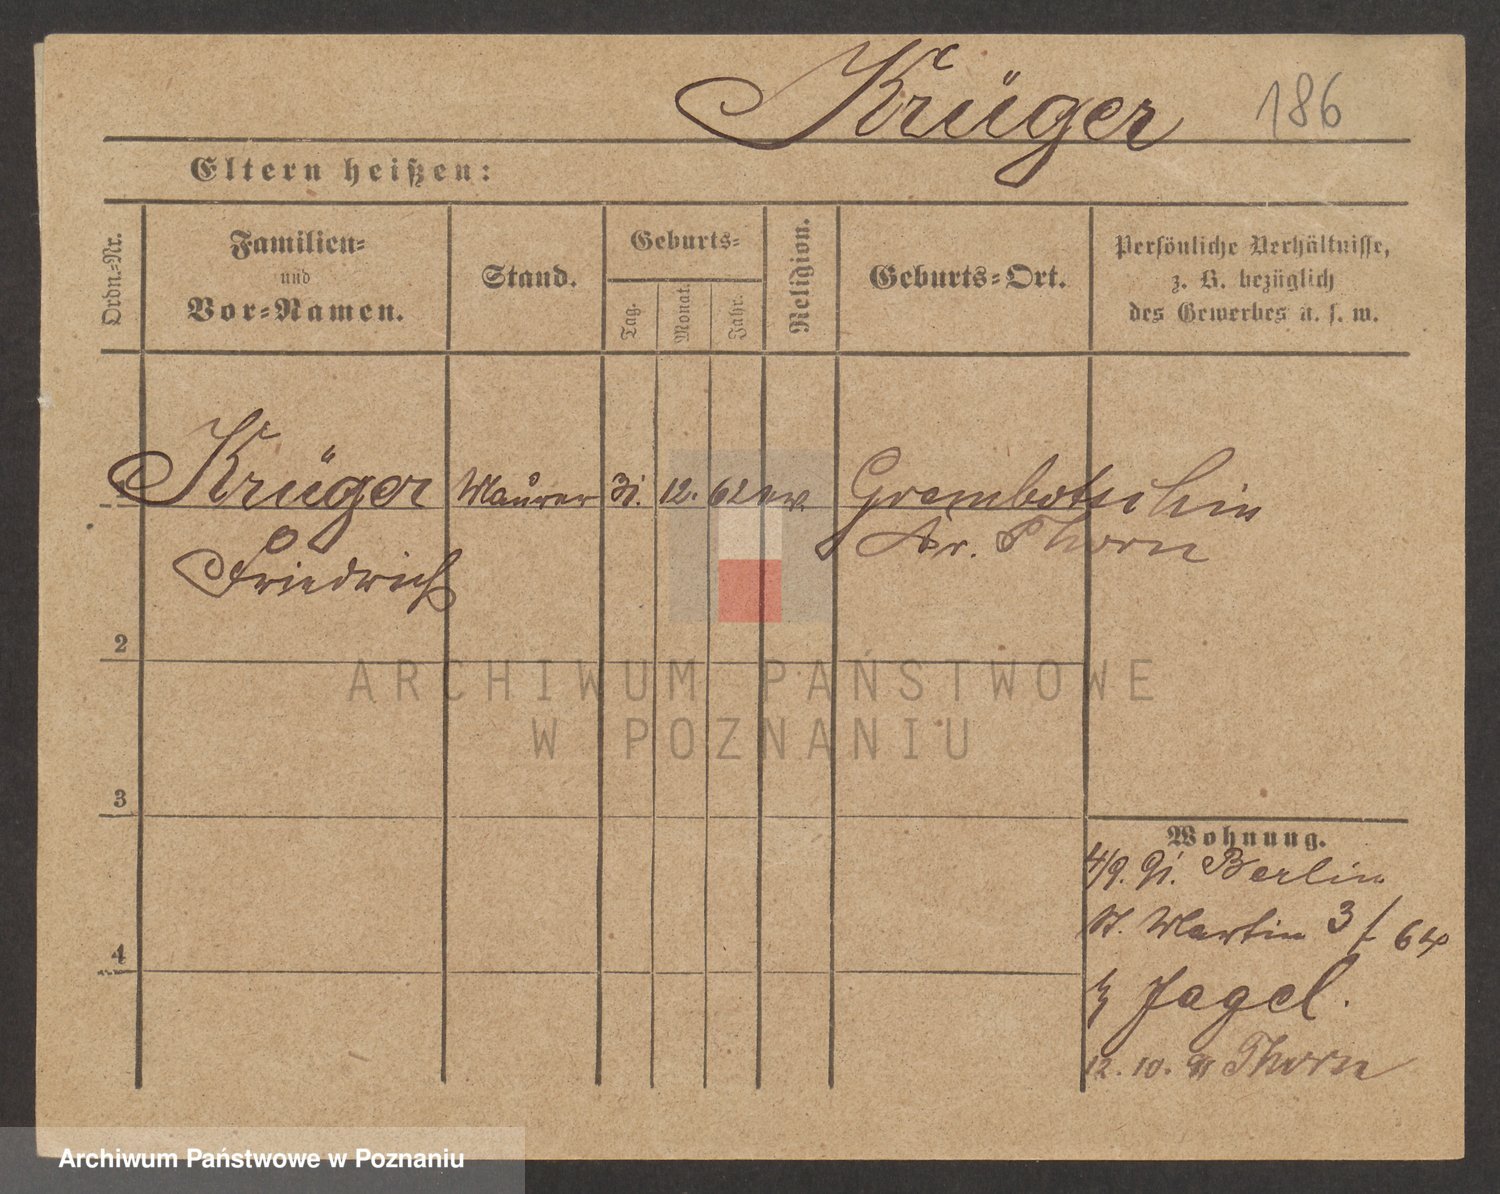 Krüger 186
Eltern heißen:
Ordn.-Nr.
Familien-
und
Vor-Namen.
Stand.
Geburts-
Tag.
Monat.
Jahr.
Religion.
Geburts-Ort.
Persönliche Verhältnisse,
z. B. bezüglich
des Gewerbes u. s. w.
Krüger Maurer 31. 12. 62 ev. Grembotschin
Friedrich
Kr. Thorn
2
3
4
Wohnung.
4/9. 91. Berlin
St. Martin 3 / 64
b/ Jagel.
12. 10. 91 Thorn
ARCHIWUM PAŃSTWOWE
W POZNANIU
Archiwum Państwowe w Poznaniu